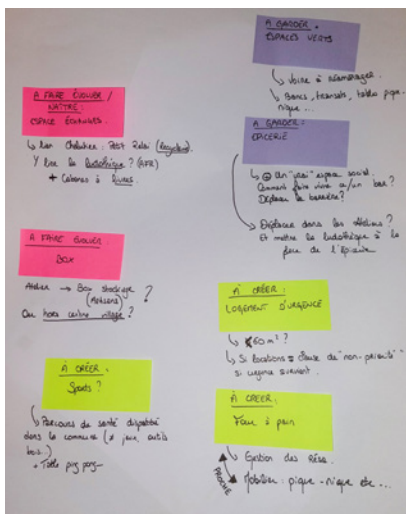 A FAIRE ÉVOLUER /
NAÎTRE:
ESPACE ÉCHANGES.
↳ Lien Chalutier : Petit Relai (Recyclerie)
Y lier la ludothèque ? (AFR)
+ Cabanes à livres.
A FAIRE ÉVOLUER :
BOX
Atelier → Box stockage ?
(Artisans)
Ou hors centre village ?
À CRÉER :
Sports ?
↳ Parcours de santé disp
dans la commune (≠ jeux, outils
bois...)
+ Table ping pong
A GARDER :
ESPACES VERTS
↳ Voire à réaménager.
↳ Bancs, transats, tables pique
nique...
A GARDER :
EPICERIE
↳ Un "vrai" espace social.
Comment faire vivre a/un bar ?
Déplacer la barrière ?
→ Déplacer dans les Ateliers ?
Et mettre la ludothèque à la
place de l'épicerie
À CRÉER :
LOGEMENT D'URGENCE
↳ 60 m² ?
↳ Si locations = clause de "non-priorité"
si urgence survient.
À CRÉER :
Four à pain
↳ Gestion des Résa.
PROCHE
Mobilier : pique-nique etc...